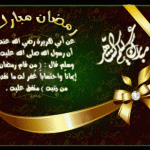 رمضان مبارك
عن أبي هريرة رضي الله عنه
أن رسول الله صلى الله عليه
وسلم قال : ( من قام رمضان
إيمانا واحتسابا غفر له ما تقدم
من ذنبه ) متفق عليه .
مبارك عليكم الشهر